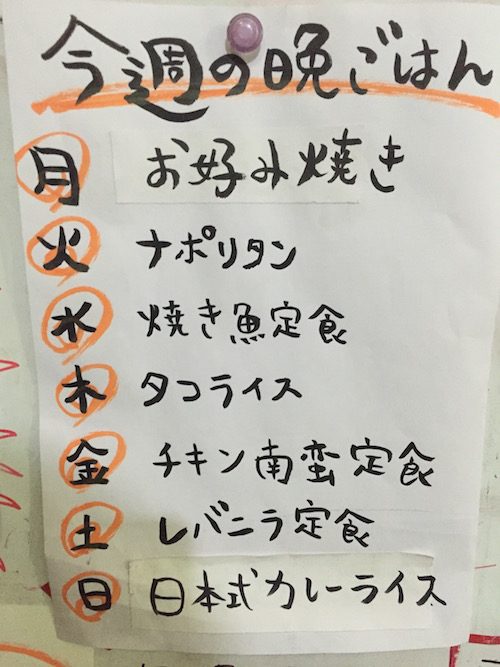 今週の晩ごはん
月 お好み焼き
火 ナポリタン
水 焼き魚定食
木 タコライス
金 チキン南蛮定食
土 レバニラ定食
日 日本式カレーライス